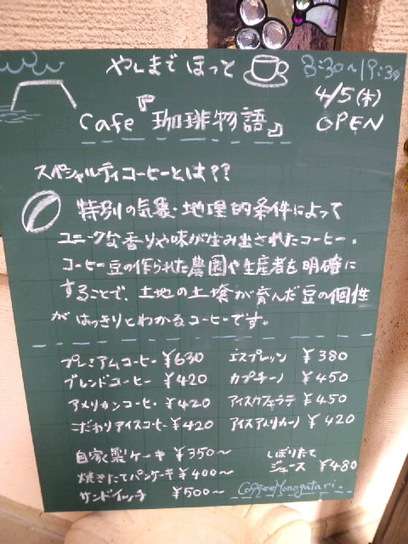 やしまでほっと
8:30~19:30
4/5(木)
OPEN
Cafe『珈琲物語』
スペシャルティコーヒーとは??
特別の気象・地理的条件によって
ユニークな香りや味が生み出されたコーヒー。
コーヒー豆の作られた農園や生産者を明確に
することで、土地の土壌が育んだ豆の個性
がはっきりとわかるコーヒーです。
プレミアムコーヒー ¥630
ブレンドコーヒー ¥420
アメリカンコーヒー ¥420
こだわりアイスコーヒー ¥420
エスプレッソ ¥380
カプチーノ ¥450
アイスカフェラテ ¥450
アイスアメリカーノ ¥420
自家製ケーキ ¥350~
焼きたてパンケーキ ¥400~
サンドイッチ ¥500~
しぼりたて
ジュース ¥480
CoffeeMonogatari